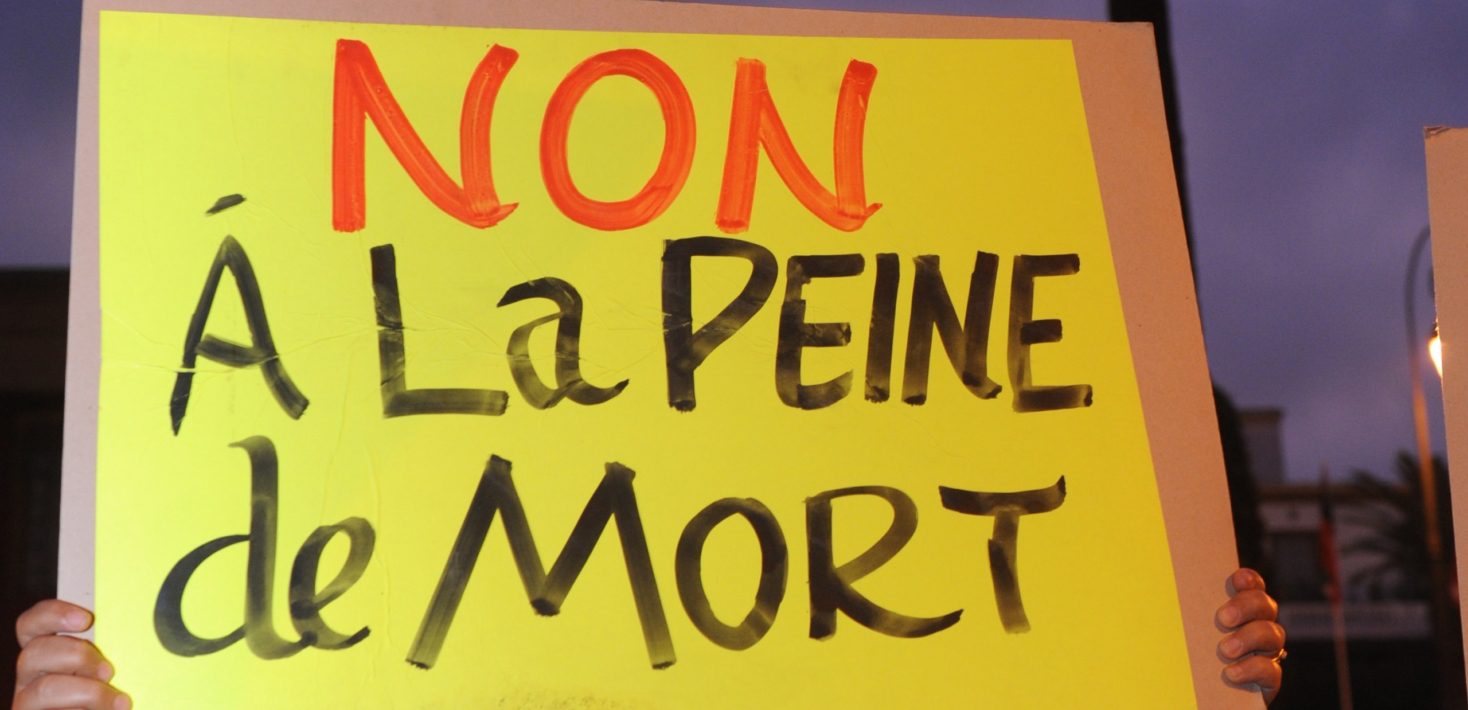 NON
Á La PEINE
de MORT